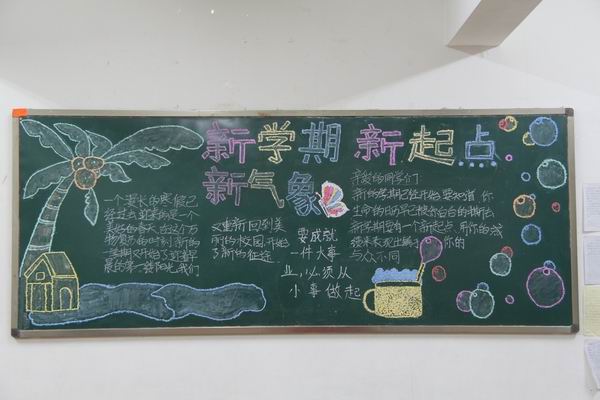 新学期 新起点
新气象
一个漫长的寒假已
经过去 迎来的是一个
美好的春天,在这个万
物复苏的时刻 新的
一学期又开始了 迎着早
晨的第一缕阳光,我们
又重新回到美
丽的校园,开始
了新的征途
要成就
一件大事
业,必须从
小事做起
亲爱的同学们:
新的学期已经开始 要知道 你
新学期要有一个新起点 用你的成
你的
与众不同